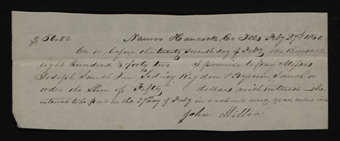 $50.00 Nauvoo Hancock Co Ills Feby 27th 1840
On or before the twenty seventh day of Feby one thousand
eight hundred & forty two I promise to pay Messrs
Joseph Smith Jun Sidney Rigdon & Hyrum Smith or
order the Sum of Fifty dollars with interest the
interest to be paid on the 27 day of Feby in each and every year
John Miller